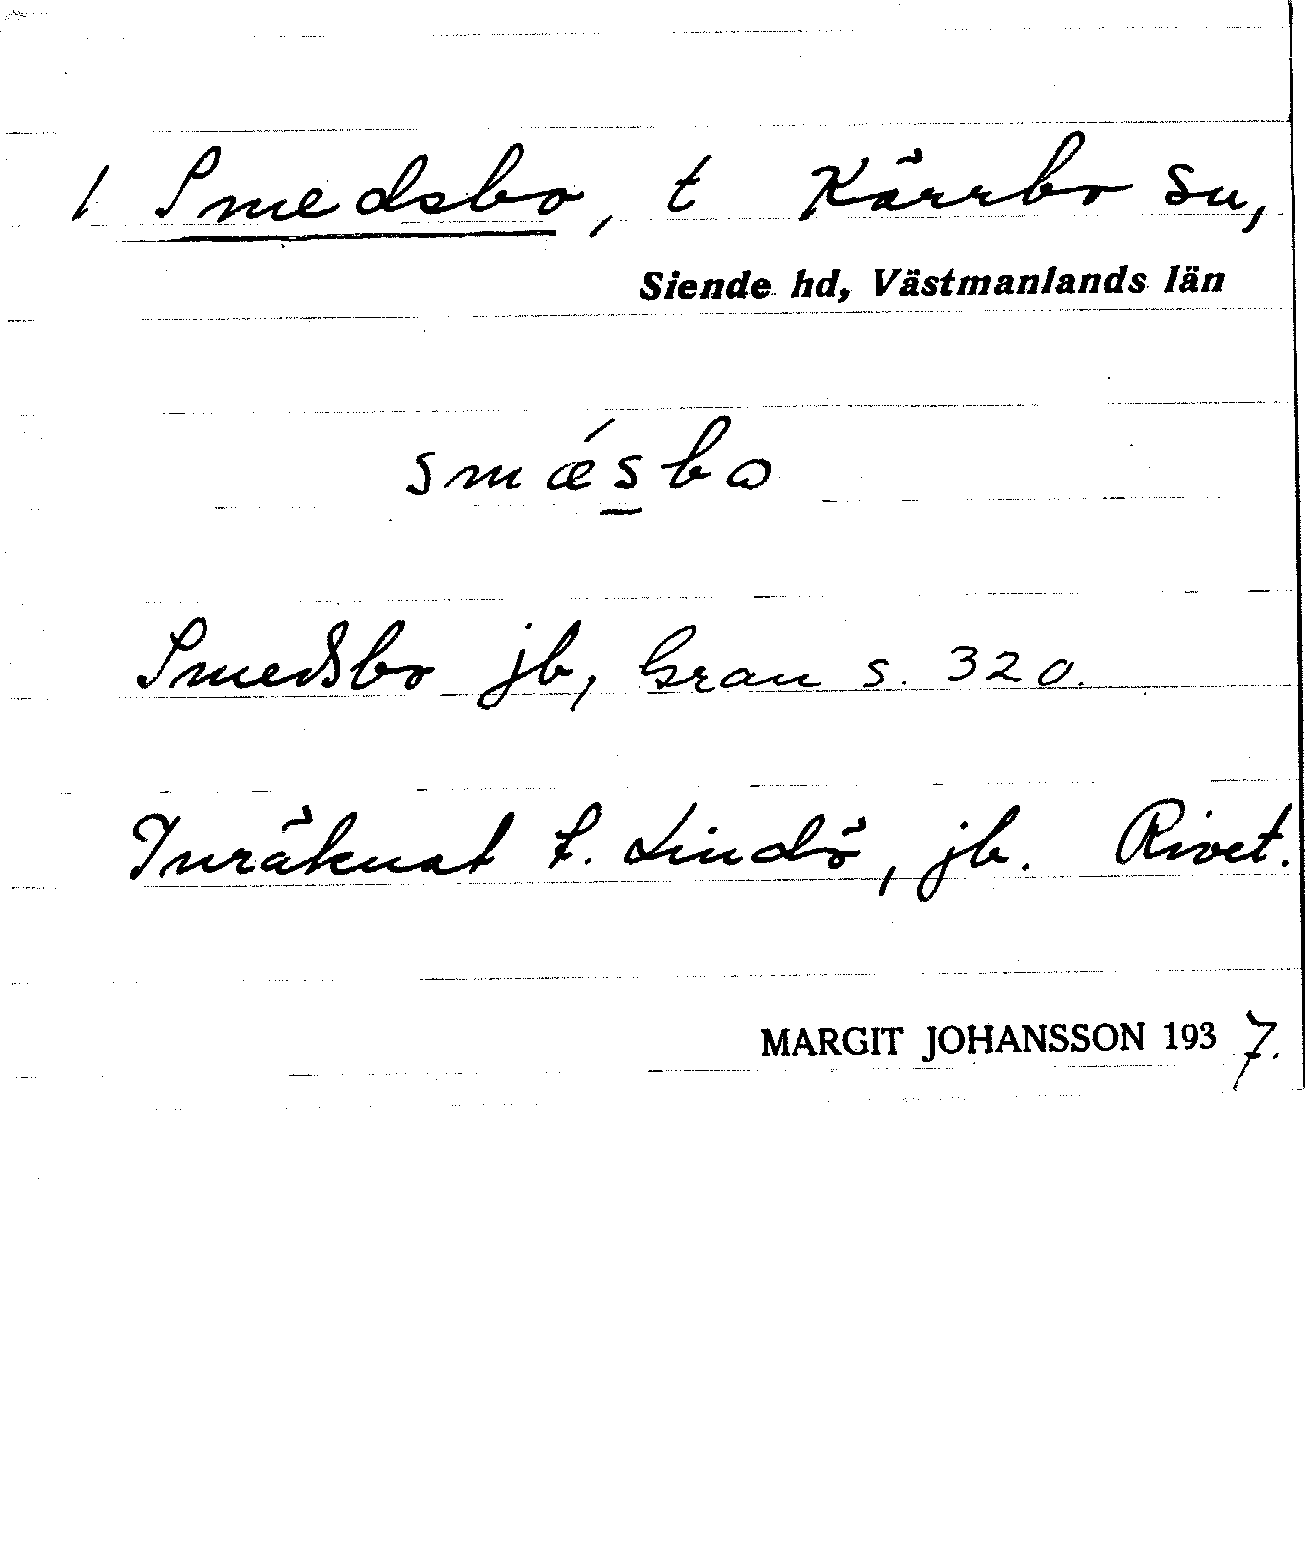 1 Smedsbo, t Kärrbo sn,
Siende hd, Västmanlands län
smǽsbo
Smedsbo jb, Gran s. 320.
Inräknat t. Lindö, jb. Rivet.
MARGIT JOHANSSON 1937.